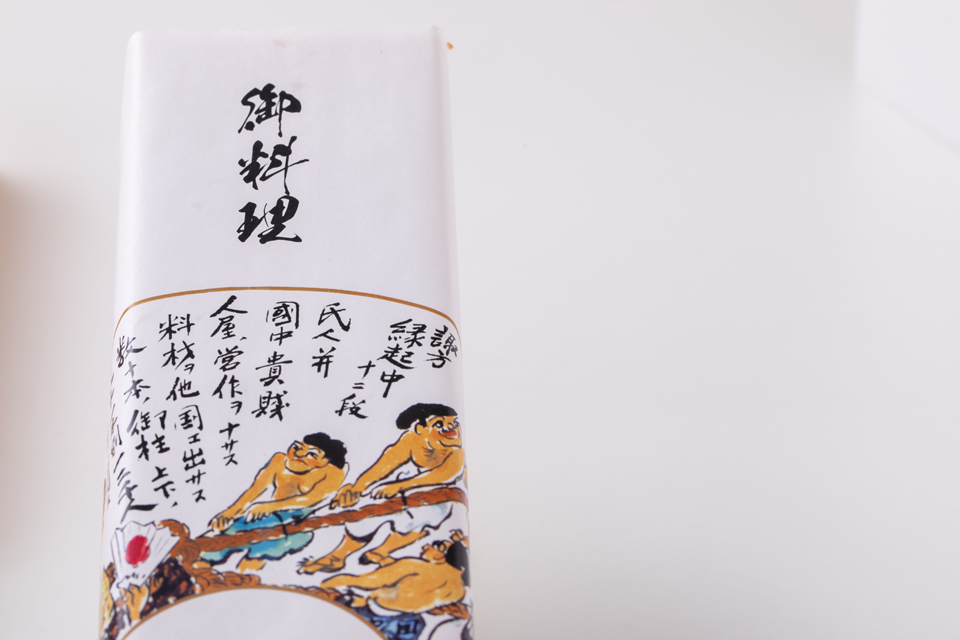 御料理
諏方
縁起中
十二段
氏人并
國中貴賤
人屋、営作ヲナサス
料材ヲ他国エ出サス
数十本、御柱上下、